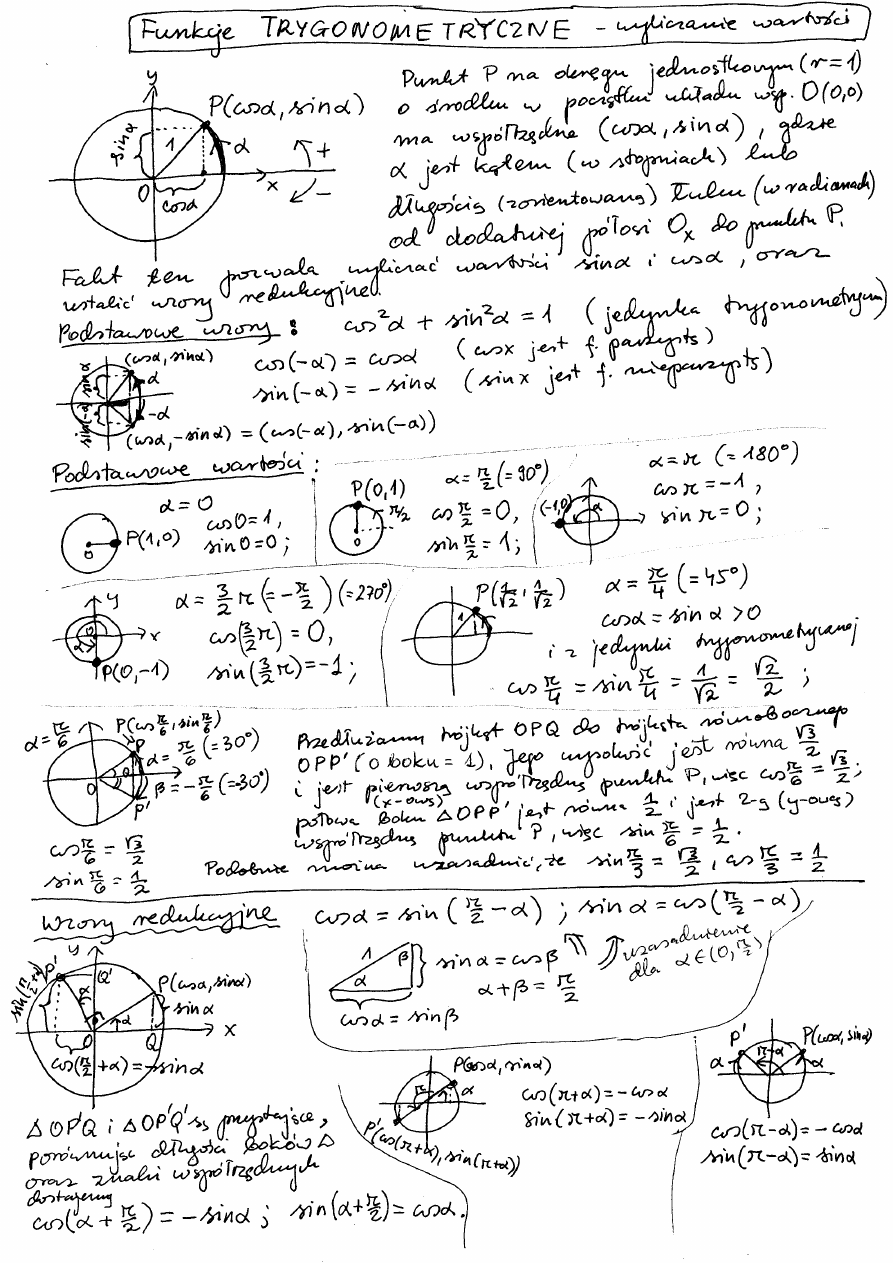 Funkcje TRYGONOMETRYCZNE - wyliczanie wartości
y
P(cosα, sinα)
sinα
1
α
+
−
0
x
cosα
Punkt P na okręgu jednostkowym (r=1)
o środku w początku układu wsp. O(0,0)
ma współrzędne (cosα, sinα), gdzie
α jest kątem (w stopniach) lub
długością (zorientowaną) łuku (w radianach)
od dodatniej półosi Ox do punktu P.
Fakt ten pozwala wyliczać wartości sinα i cosα, oraz
ustalić wzory redukcyjne.
Podstawowe wzory: cos²α + sin²α = 1 (jedynka trygonometryczna)
(cosα, sinα)
cos(-α) = cosα (cosx jest f. parzystą)
sin(-α) = -sinα (sinx jest f. nieparzystą)
sinα
sin(-α)
α
-α
(cosα, -sinα) = (cos(-α), sin(-α))
Podstawowe wartości:
α = 0
P(1,0)
0
cos0 = 1,
sin0 = 0;
P(0,1)
π/2
0
α = π/2 (= 90°)
cos π/2 = 0,
sin π/2 = 1;
(-1,0)
α
α = π (= 180°)
cos π = -1,
sin π = 0;
y
x
α
P(0,-1)
α = 3/2 π (= -π/2) (= 270°)
cos(3/2 π) = 0,
sin(3/2 π) = -1;
P(1/√2, 1/√2)
1
α = π/4 (= 45°)
cosα = sinα > 0
i z jedynki trygonometrycznej
cos π/4 = sin π/4 = 1/√2 = √2/2;
α = π/6
P(cos π/6, sin π/6)
P
α = π/6 (= 30°)
0
β = -π/6 (= 30°)
P'
cos π/6 = √3/2
sin π/6 = 1/2
Przedłużamy trójkąt OPQ do trójkąta równobocznego
OPP' (o boku = 1). Jego wysokość jest równa √3/2
i jest pierwszą (x-ową) współrzędną punktu P, więc cos π/6 = √3/2;
połowa boku ΔOPP' jest równa 1/2 i jest 2-ą (y-ową)
współrzędną punktu P, więc sin π/6 = 1/2.
Podobnie można uzasadnić, że sin π/3 = √3/2, cos π/3 = 1/2
Wzory redukcyjne
cosα = sin(π/2 - α); sinα = cos(π/2 - α)
1
β
α
sinα = cosβ
α + β = π/2
cosα = sinβ
uzasadnienie
dla α∈(0, π/2)
y
P'
Q'
sin(π/2+α)
α
P(cosα, sinα)
sinα
α
0
Q
x
cos(π/2 + α) = -sinα
ΔOPQ i ΔOP'Q' są przystające,
porównując długości boków Δ
oraz znaki współrzędnych
dostajemy
cos(α + π/2) = -sinα; sin(α + π/2) = cosα.
P(cosα, sinα)
π
α
P'(cos(π+α), sin(π+α))
cos(π+α) = -cosα
sin(π+α) = -sinα
P'
P(cosα, sinα)
π-α
α
α
cos(π-α) = -cosα
sin(π-α) = sinα